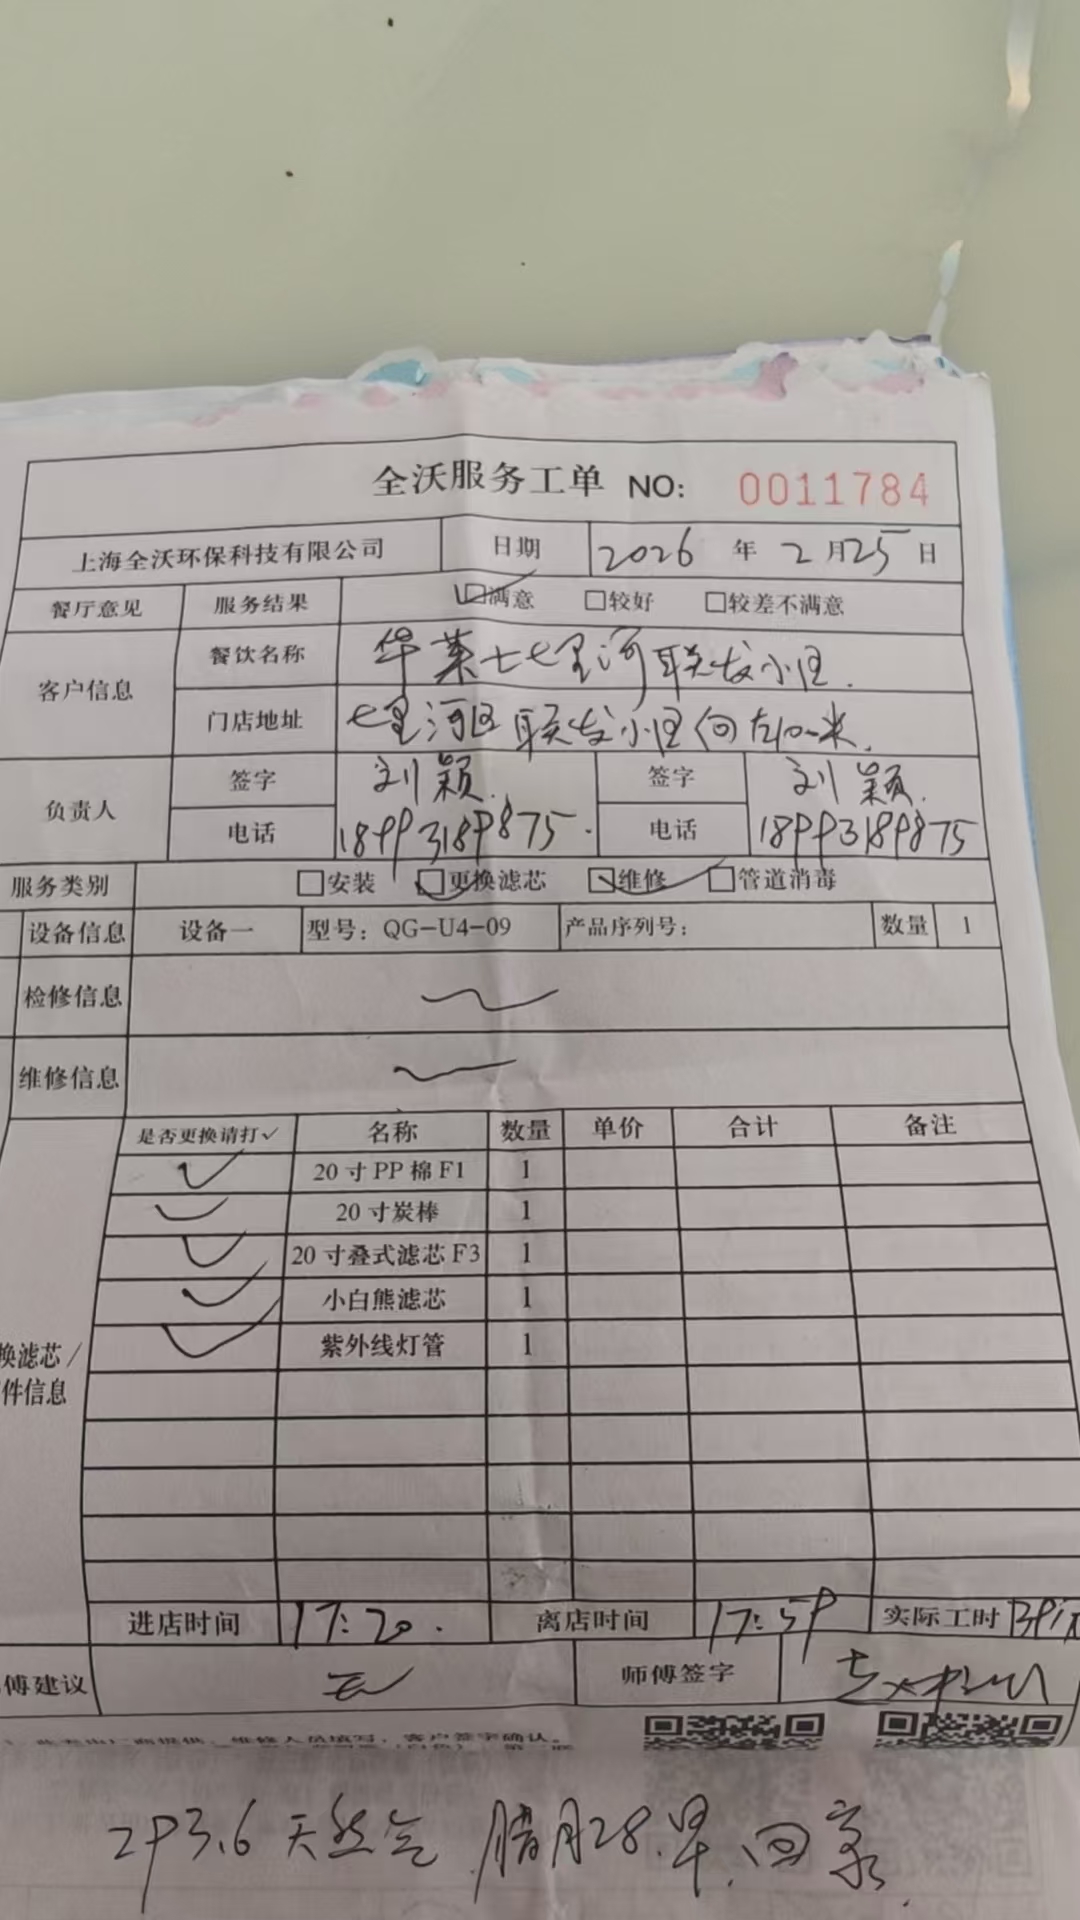 全沃服务工单 NO: 0011784
上海全沃环保科技有限公司 日期 2026 年 2 月 25 日
餐厅意见 服务结果 满意 较好 较差不满意
客户信息 餐饮名称 华莱士七里河联发小区
门店地址 七里河区联发小区向左10米
负责人 签字 刘颖 签字 刘颖
电话 18993189875 电话 18993189875
服务类别 安装 更换滤芯 维修 管道消毒
设备信息 设备一 型号: QG-U4-09 产品序列号: 数量 1
检修信息
维修信息
是否更换请打✓ 名称 数量 单价 合计 备注
✓ 20寸PP棉F1 1
✓ 20寸炭棒 1
✓ 20寸叠式滤芯F3 1
✓ 小白熊滤芯 1
✓ 紫外线灯管 1
换滤芯/
件信息
进店时间 17:20. 离店时间 17:59 实际工时
傅建议 无 师傅签字
293.6 天然气 腊月28.早.回家.